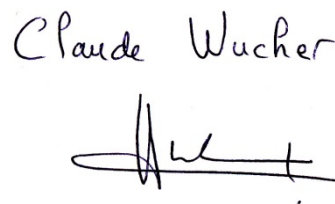 Claude Wucher